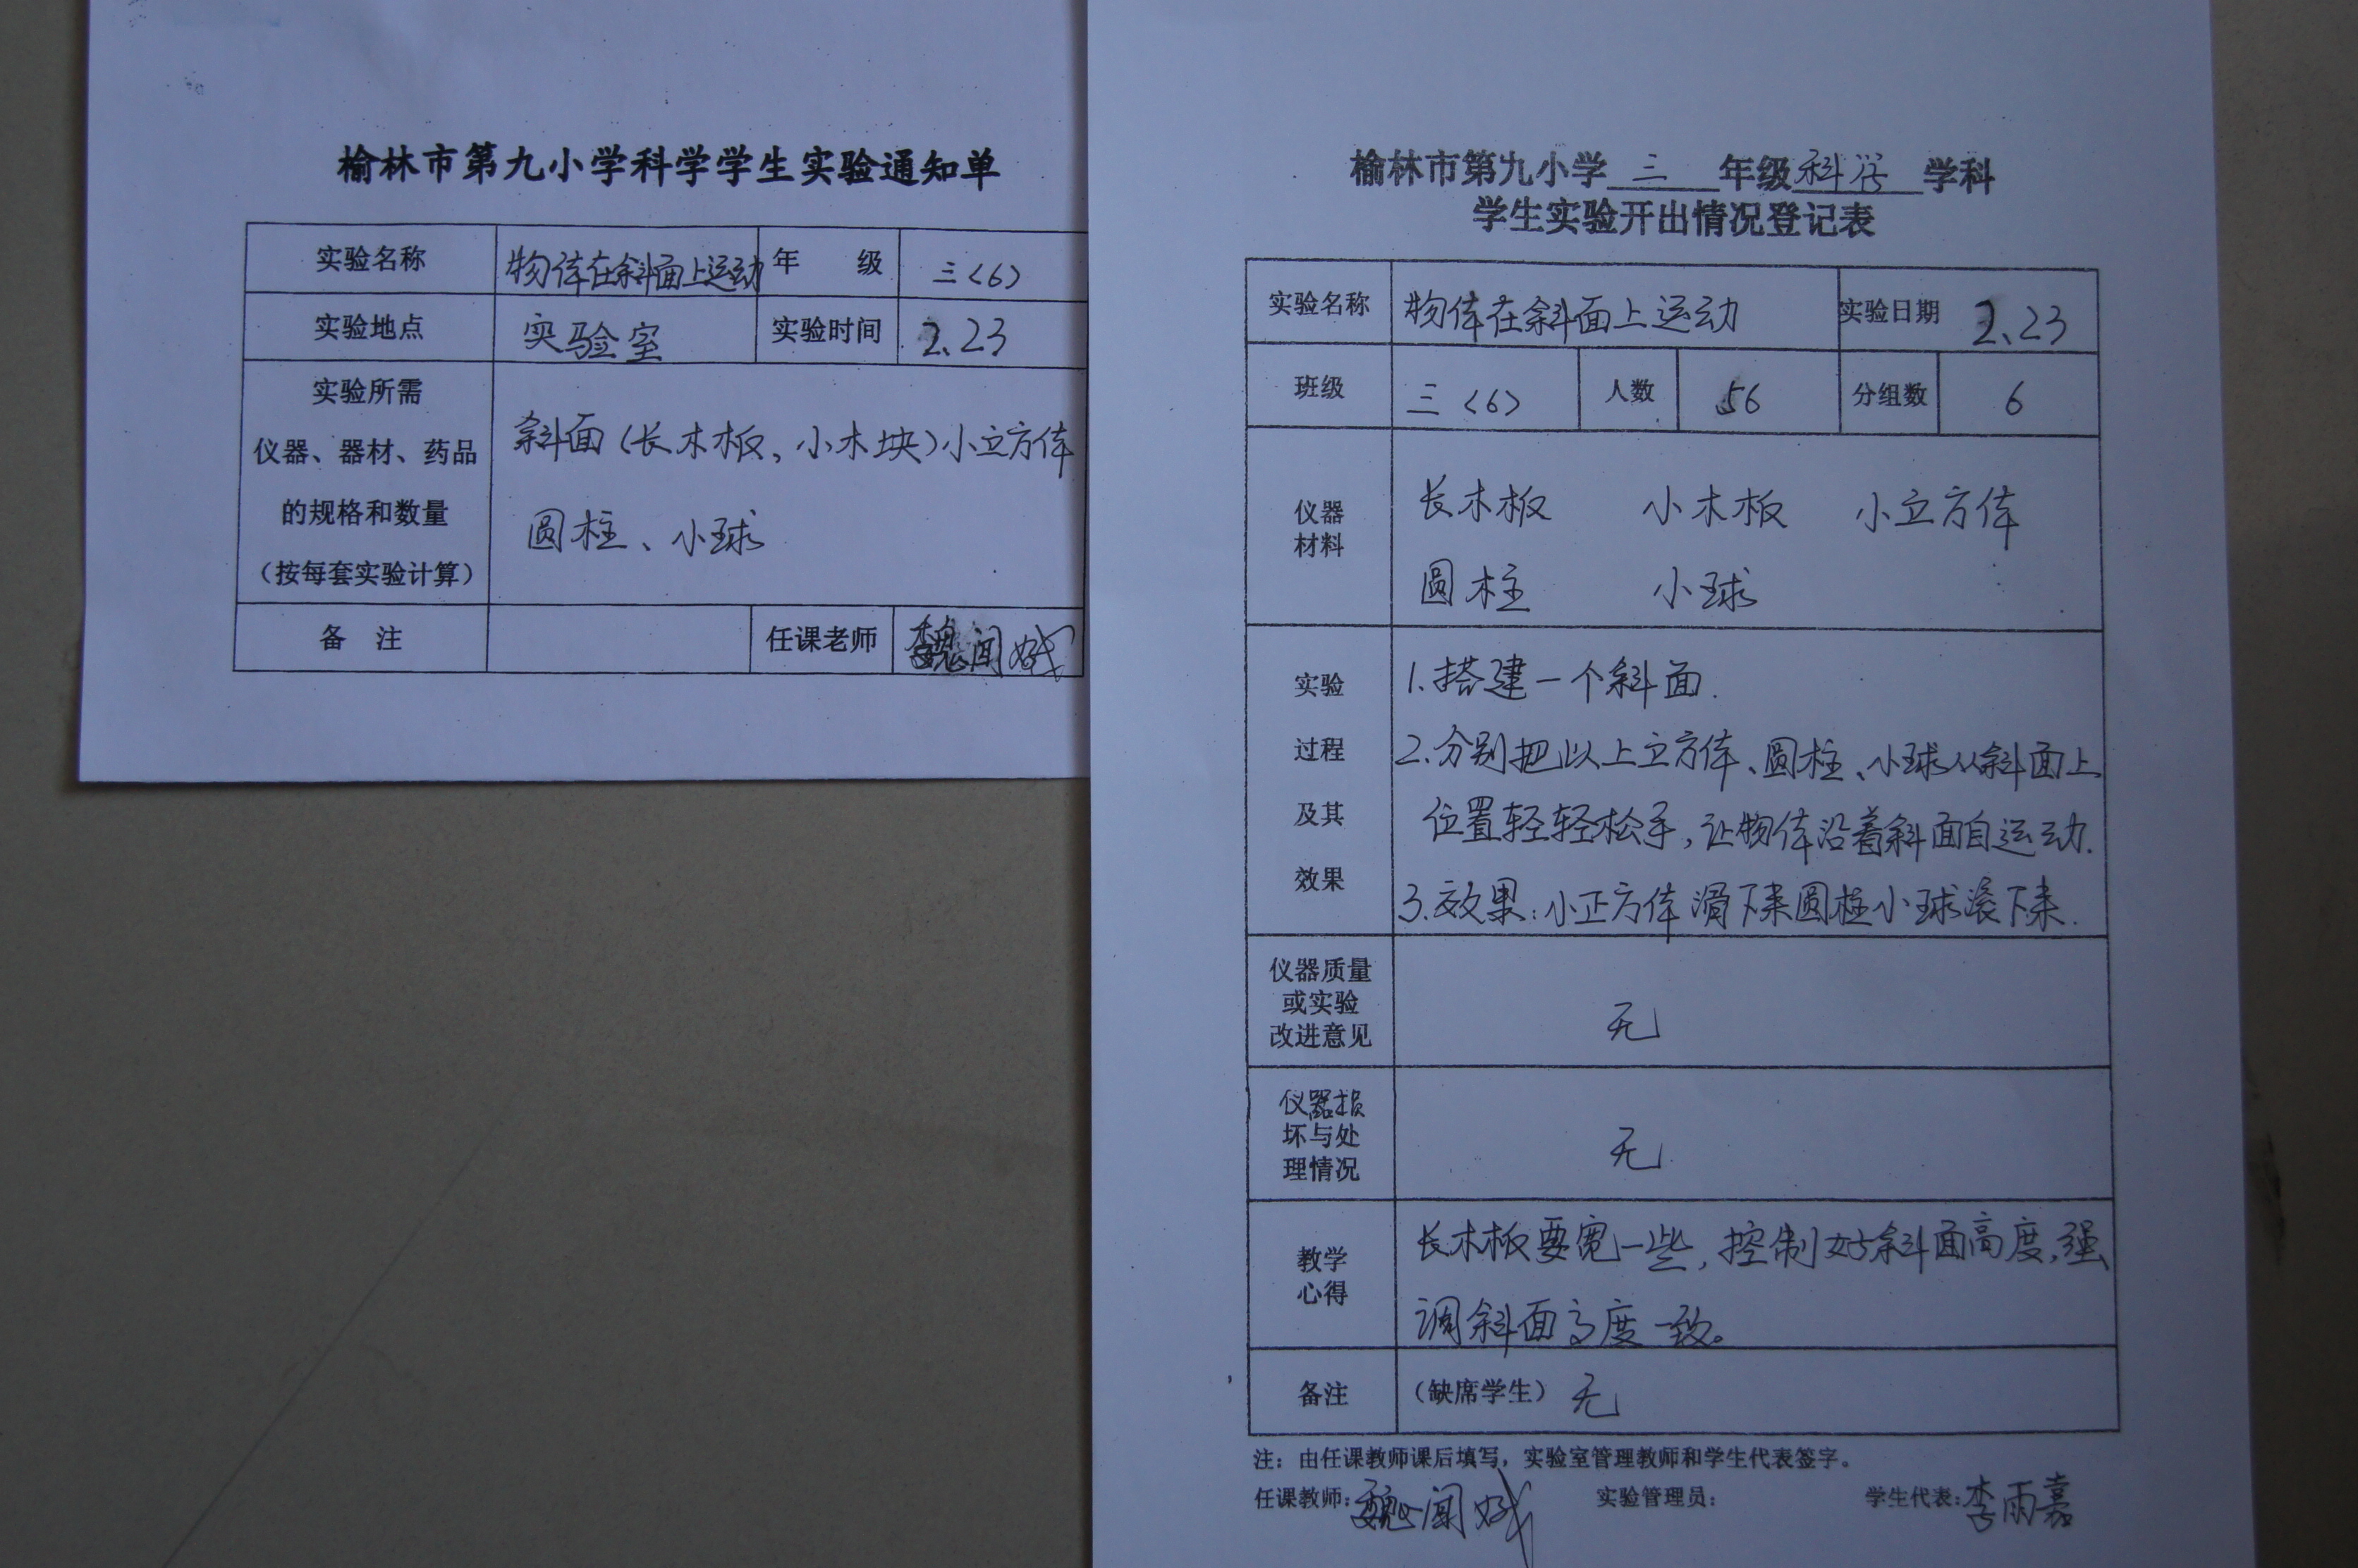 榆林市第九小学科学学生实验通知单
实验名称 物体在斜面上运动 年 级 三(6)
实验地点 实验室 实验时间 2.23
实验所需
仪器、器材、药品
的规格和数量
(按每套实验计算)
斜面(长木板,小木块)小立方体
圆柱、小球
备 注 任课老师 魏闻
榆林市第九小学 三 年级 科学 学科
学生实验开出情况登记表
实验名称 物体在斜面上运动 实验日期 2、23
班级 三(6) 人数 56 分组数 6
仪器
材料
长木板 小木板 小立方体
圆柱 小球
实验
过程
及其
效果
1.搭建一个斜面.
2.分别把以上立方体、圆柱、小球从斜面上
位置轻轻松手,让物体沿着斜面自运动.
3.效果:小正方体滑下来圆柱小球滚下来.
仪器质量
或实验
改进意见
无
仪器损
坏与处
理情况
无
教学
心得
长木板要宽一些,控制好斜面高度,强
调斜面高度一致。
备注 (缺席学生) 无
注:由任课教师课后填写,实验室管理教师和学生代表签字。
任课教师: 魏闻 实验管理员: 学生代表: 李雨嘉